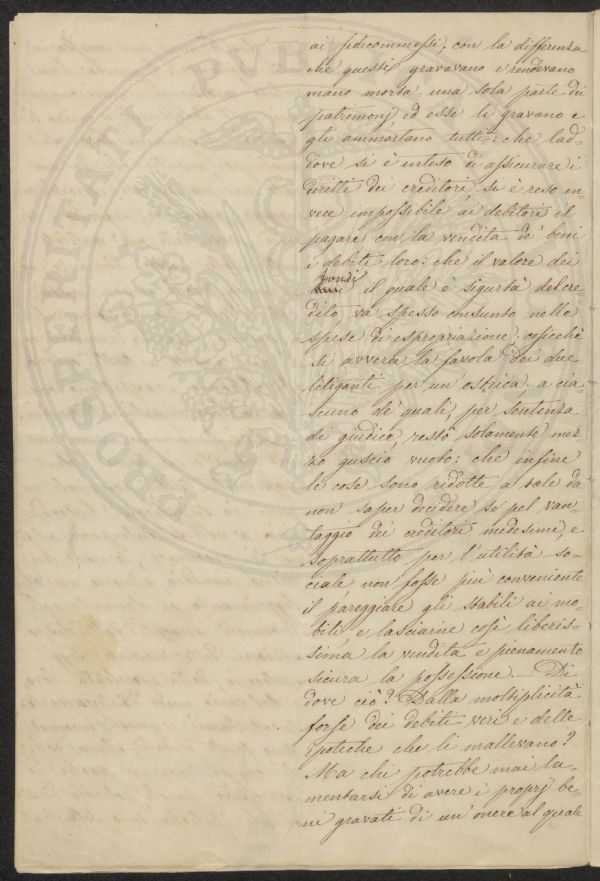 ai fidecommessi, con la differenza
che questi gravavano e rendevano
mano morta una sola parte dei
patrimonj, ed esse li gravano e
gli ammortano tutti: che lad-
dove si è inteso di assicurare i
diritti dei creditori, si è reso in-
vece impossibile ai debitori il
pagare con la vendita de' beni
i debiti loro: che il valore dei
fondi
il quale è sigurtà del cre
dito va spesso consunto nelle
spese di espropriazione, cosicchè
si avvera la favola dei due
litiganti per un' ostrica, a cia-
scuno de' quali, per sentenza
di giudice, restò solamente mez-
zo guscio vuoto: che infine
le cose sono ridotte a tale da
non saper decidere se pel van-
taggio dei creditori medesimi, e
soprattutto per l'utilità so-
ciale non fosse più conveniente
il pareggiare gli stabili ai mo-
bili e lasciarne così liberis-
sima la vendita e pienamente
sicura la possessione. — Di
dove ciò? Dalla moltiplicità
forse dei debiti veri e delle
ipoteche che li mallevano?
Ma chi potrebbe mai la-
mentarsi di avere i proprj be-
ni gravati di un' onere al quale
PROSPERITATI PVB